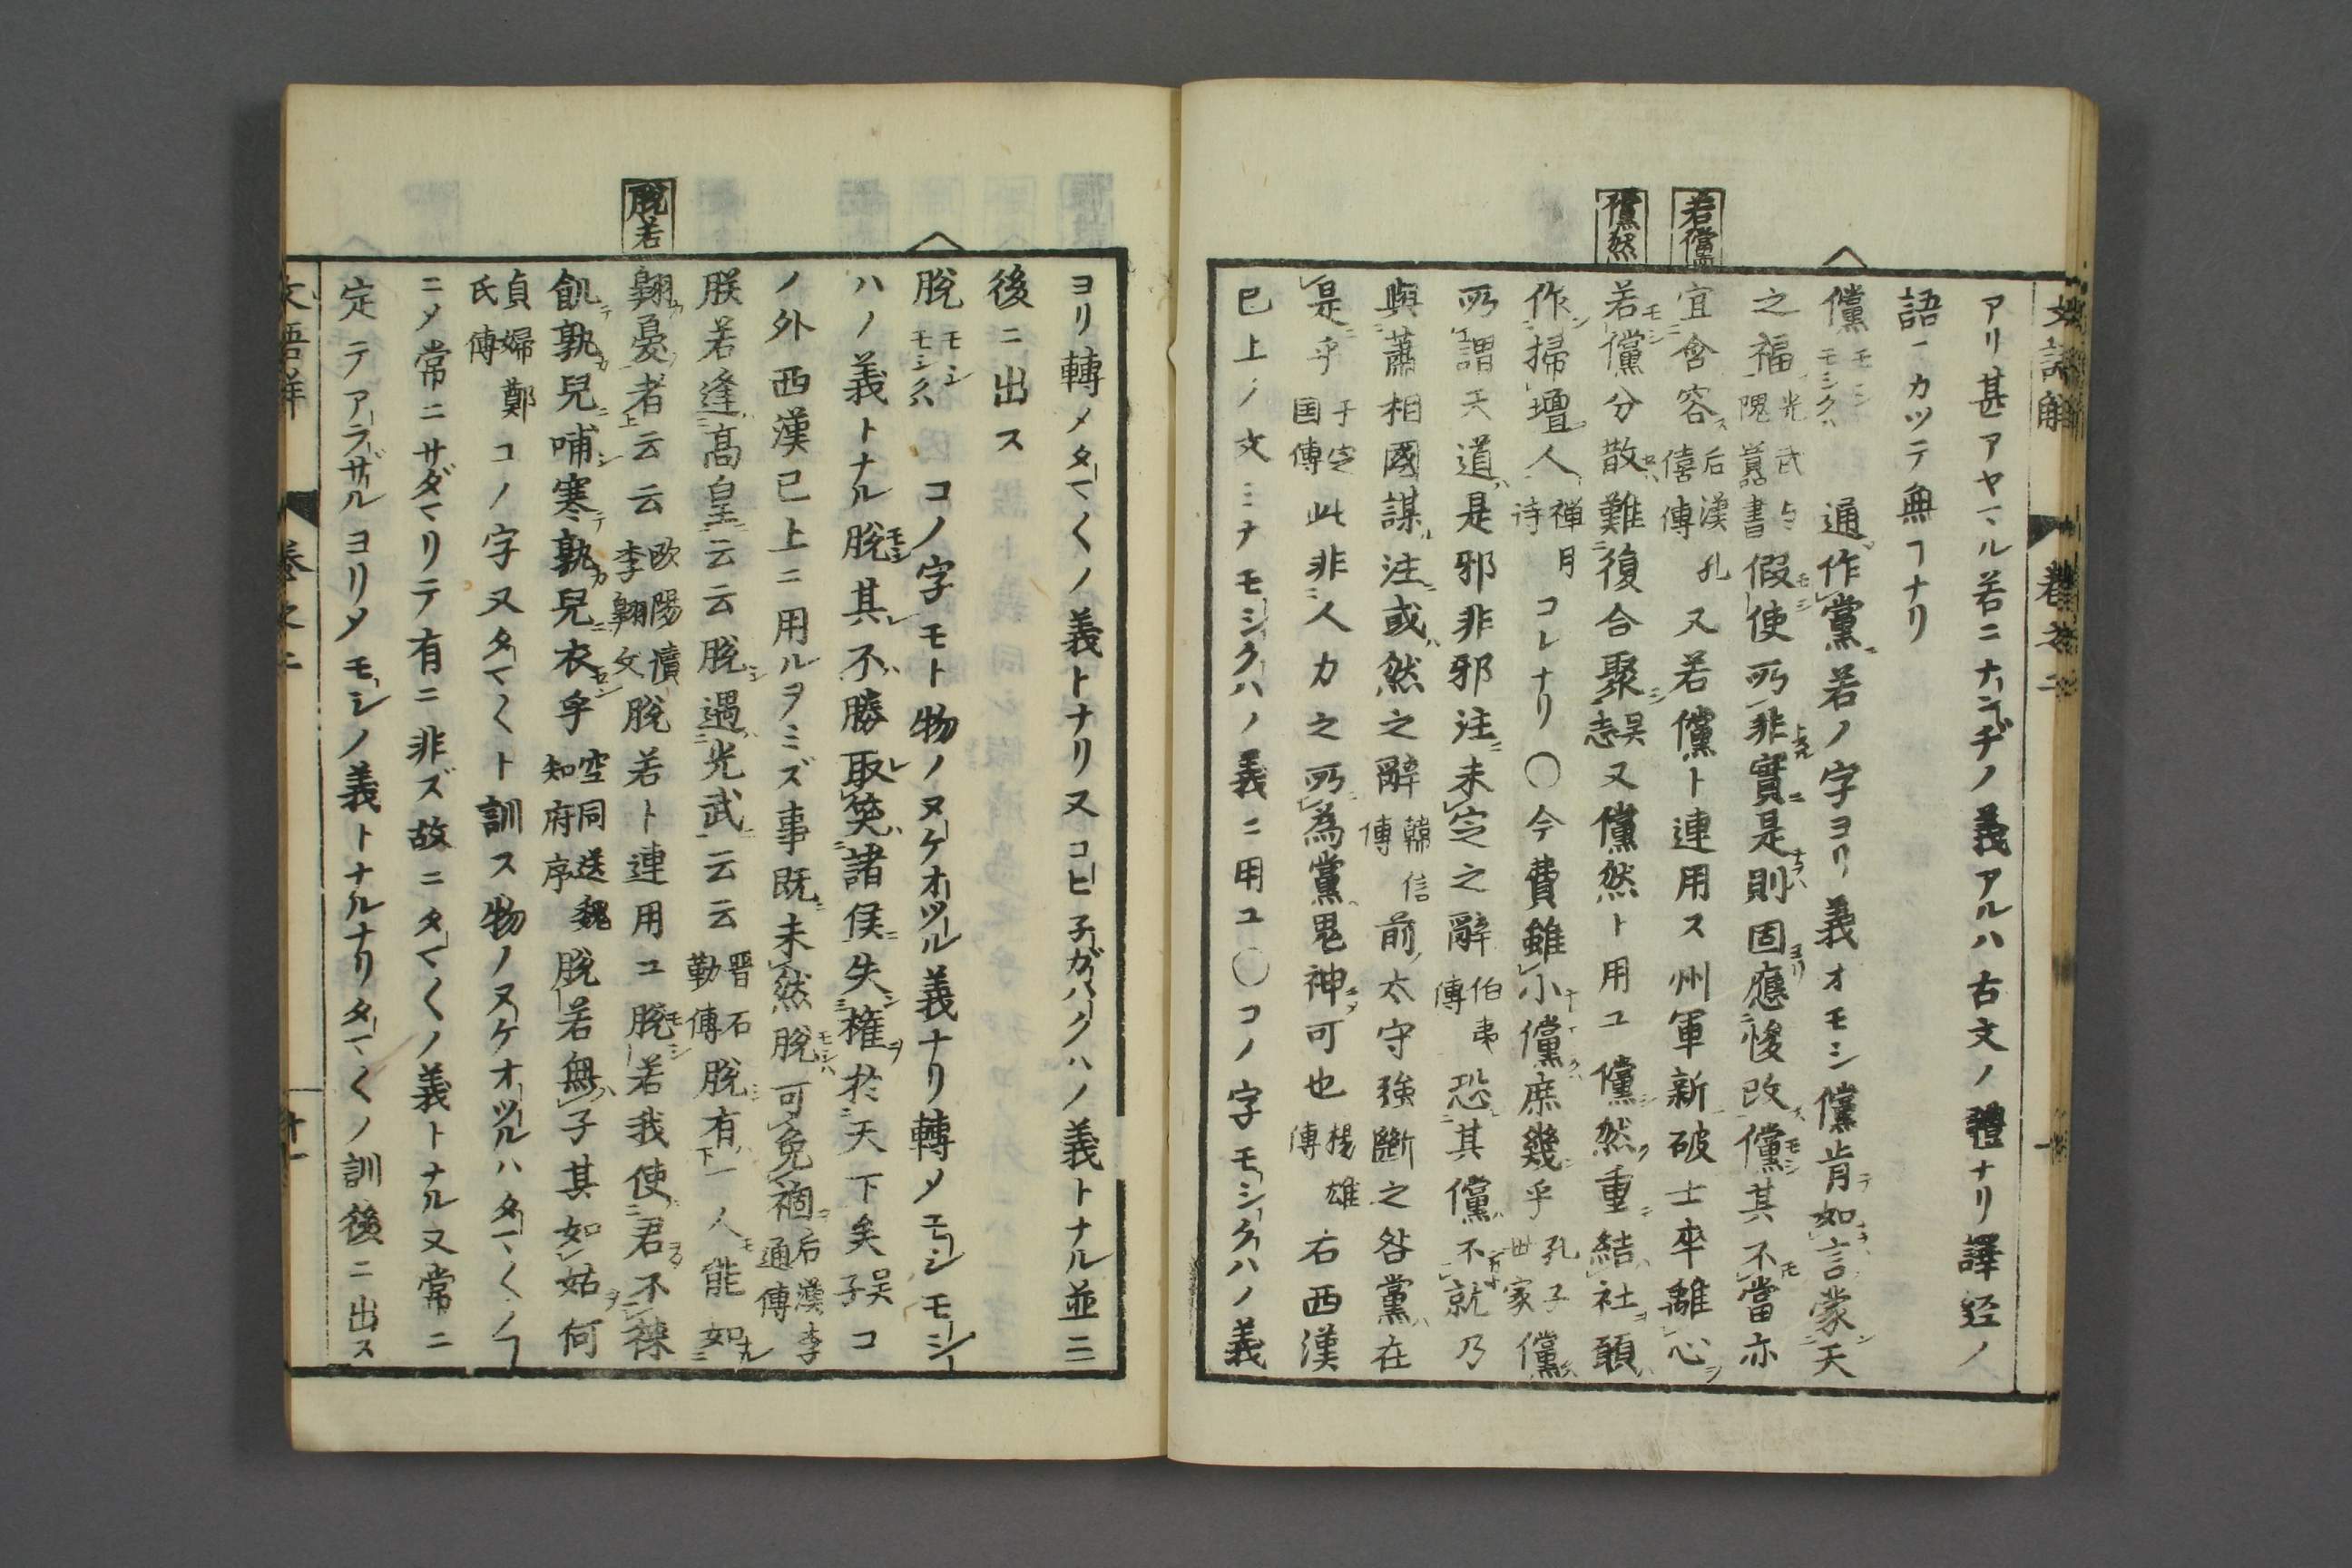 文語解
卷之二
アリ甚アヤマル若ニナンヂノ義アルハ古文ノ體ナリ譯経ノ
語ニカツテ無ヿナリ
儻 モシ モシクハ 通作黨若ノ字ヨリ義オモシ儻肯如言蒙天
之福 光武与隗囂書 假使所非實是則固應悛改儻其不當亦
若儻
宜含容 后漢孔僖傳 又若儻ト連用ス州軍新破士卒離心
儻然
若儻分散難復合聚 吴志 又儻然ト用ユ儻然重結社願
作掃壇人 禅月诗 コレナリ〇今費雖小儻庶幾乎 孔子世家 儻
所謂天道是邪非邪注未定之辭 伯夷傳 恐其儻不就乃
與蕭相國謀注或然之辭 韓信傳 前太守強斷之咎黨在
是乎 于定国傳 此非人力之所為黨鬼神可也 揚雄傳 右西漢
已上ノ文ミナモシクハノ義ニ用ユ〇コノ字モシクハノ義
ヨリ轉メタマ〱ノ義トナリ又コヒ子ガハクハノ義トナル並ニ
後ニ出ス
脫 モシ モシクハ コノ字モト物ノヌケオツル義ナリ轉メモシモシ
ハノ義トナル脫其不勝取笑諸侯失権於天下矣 吴子 コ
ノ外西漢已上ニ用ルヲミズ事既未然脫可免禍 后漢李通傳
朕若逢髙皇云云脫遇光武云云 晋石勒傳 脫有一人能如
脫若
翺憂者云云 欧陽讀李翺文 脫若ト連用ユ脫若我使君不祿
飢孰兒哺寒孰兒衣乎 空同送魏知府序 脫若無子其如姑何
貞婦鄭氏傳 コノ字又タマ〱ト訓ス物ノヌケオツルハタマ〱ノヿ
ニメ常ニサダマリテ有ニ非ズ故ニタマ〱ノ義トナル又常ニ
定テアラザルヨリメモシノ義トナルナリタマ〱ノ訓後ニ出ス
文語解
卷之二
十一